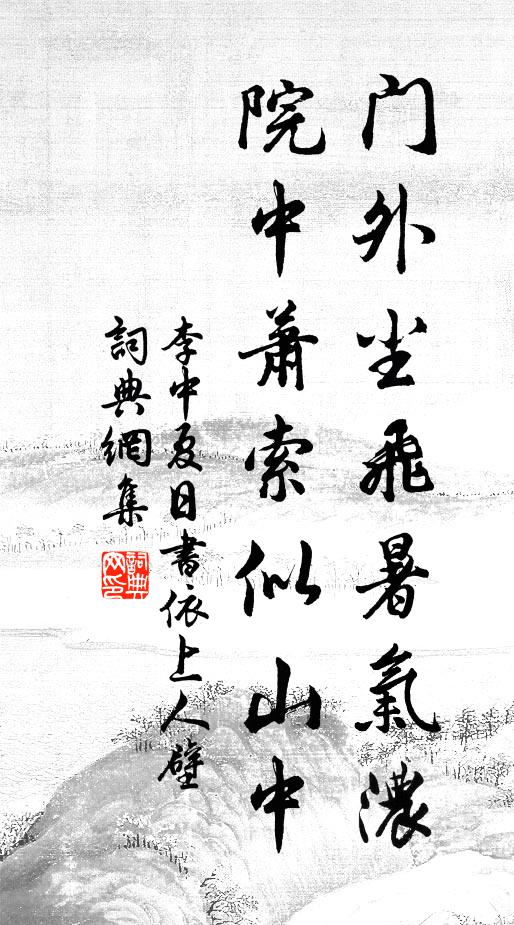 门外尘飞暑氣濃
院中蕭索似山中
李中夏日書依上人壁
詞典網集
詞典网印